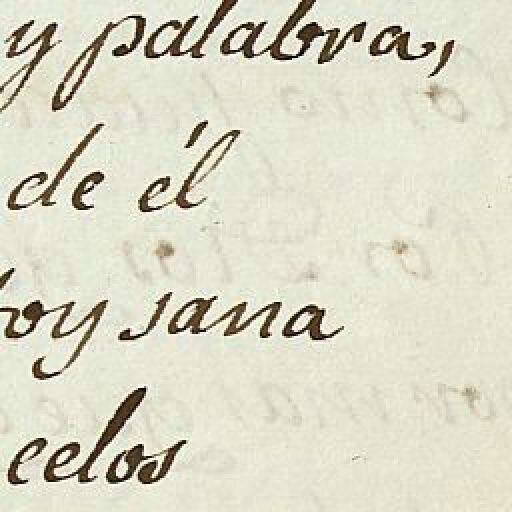 y palabra,
de él
toy sana
celos